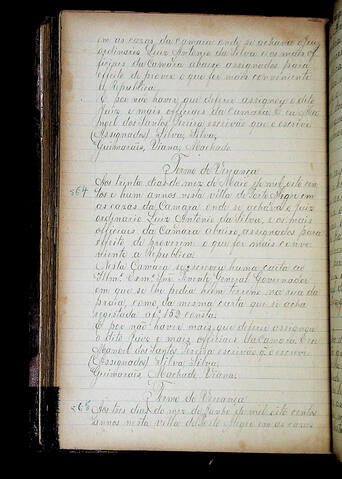 em as cazas da camara onde se achava o Juiz
ordinario Luiz Antonio da Silva e os mais of
ficiaes da Camara abaixo assignados para
effeito de prover o que for mais conveniente
a Republica.
E por não haver que deferir assignou o dito
Juiz e mais officiaes da Camara. Eu Ma-
noel dos Santos escrivão que o escrevi
(Assignados) Silva, Silva,
Guimarães, Viana, Machado.
Termo de Vereança
564
Aos trinta dias do mez de Maio de mil oito cen
tos e hum annos nesta villa de Porto Alegre em
as cazas da Camara onde se achava o Juiz
ordinario Luiz Antonio da Silva, e os mais
officiaes da Camara abaixo assignados para
effeito de proverem o que for mais conve
niente a Republica.
Nesta Camara se huma carta ao
Illmo. Exmo. Snr. Tenente General Governador
em que se lhe pedia na rua da
praia, como da mesma carta que se acha
registada a f. 152 consta.
E por não haver mais que deferir assignou
o dito Juiz e mais officiaes da Camara Eu
Manoel dos Santos escrivão o escrevi
(Assignados) Silva, Silva,
Guimarães, Machado, Viana.
Termo de Vereança
565
Aos tres dias do mez de Junho de mil oito centos
annos nesta villa de Porto Alegre em as cazas